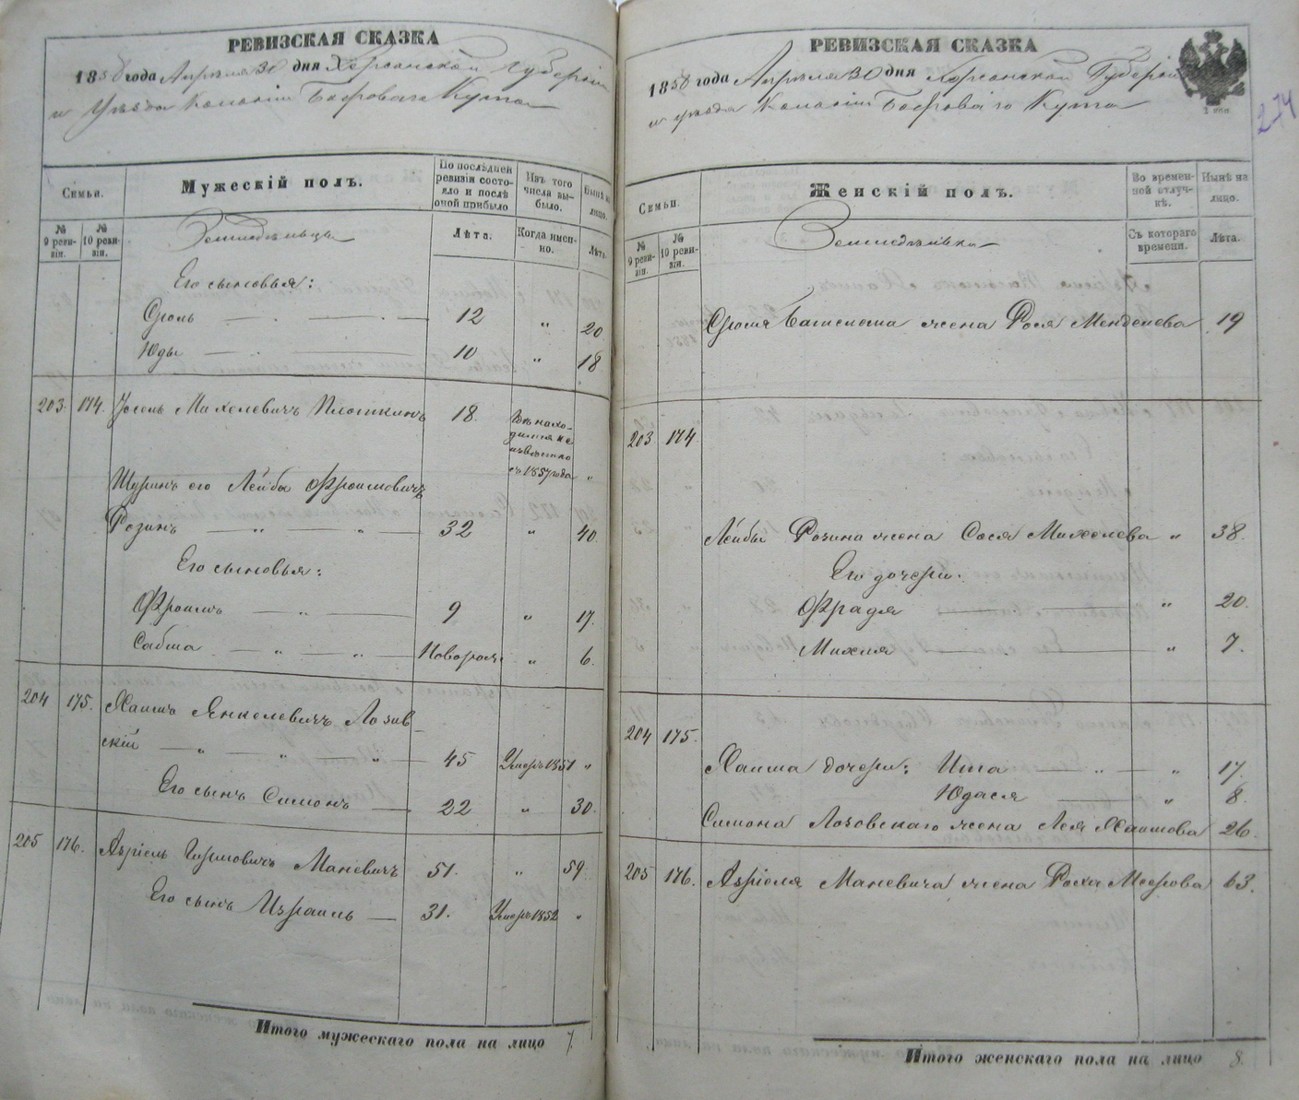 РЕВИЗСКАЯ СКАЗКА
1858 года Апрѣля 30 дня Херсонской Губерніи
и Уѣзда Колоніи Бобровый Кутъ
Семьи.
Мужескій полъ.
По послѣдней ревизіи состояло и послѣ оной прибыло
Изъ того числа выбыло.
Нынѣ на лицо.
№ 9 ревизіи.
№ 10 ревизіи.
Земледѣльцы
Лѣта.
Когда именно.
Лѣта.
Его сыновья:
Сроль — 12 „ 20
Юды — 10 „ 18
203. 174. Іосель Михелевичъ Плоткинъ 18. Гдѣ находится не извѣстно съ 1857 года „
Шуринъ его Лейба Фроимовичъ
Розинъ — „ — „ — 32 „ 40.
Его сыновья:
Фроимъ — 9 „ 17.
Сабша — „ — „ — Новорожд „ 6.
204 175. Хаимъ Янкелевичъ Лозов
скій — „ „ „ — 45 Умеръ 1851 „
Его сынъ Симонъ — 22 „ 30.
205 176. Азріель Маневичъ 51. „ 59.
Его сынъ Израиль — 31. Умеръ 1852 „
Итого мужескаго пола на лицо 7.
РЕВИЗСКАЯ СКАЗКА
1858 года Апрѣля 30 дня Херсонской Губерніи
и уѣзда Колоніи Бобровый Кутъ
2 коп
274
Семьи.
Женскій полъ.
Во временной отлучкѣ.
Нынѣ на лицо.
№ 9 ревизіи.
№ 10 ревизіи.
Земледѣлки
Съ котораго времени.
Лѣта.
жена Рося Менделева 19
203 174
Лейбы Розина жена Сося Михелева „ 38.
Его дочери:
Фрадя „ 20.
Михля „ 7.
204 175.
Хаима дочери: Ита — „ — „ 17.
Юдася „ 8.
Симона Лозовскаго жена Лея Хаимова 26.
205 176. Азріеля Маневича жена Рохха Меерова 63.
Итого женскаго пола на лицо 8.